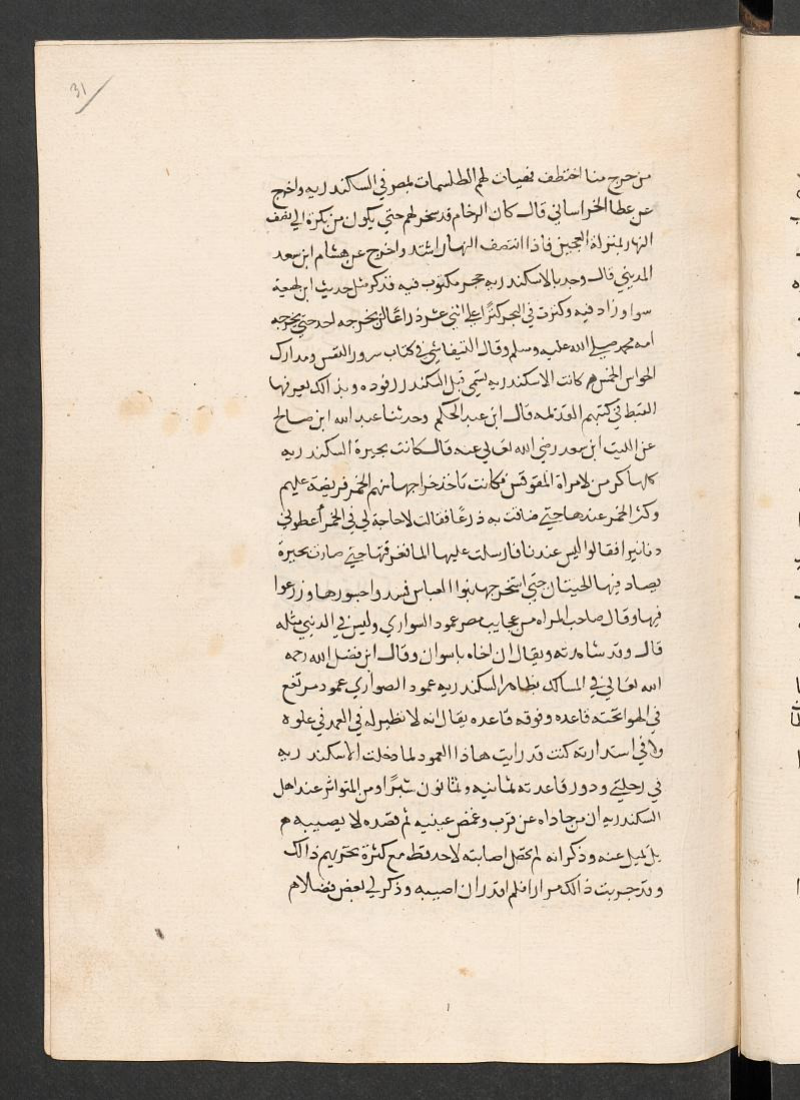 31
من خرج منا اختطف فهيات لهم الطلسمات بمصر في السكندريه واخرج
عن عطا الخراساني قال كان الرخام قد سخر لهم حتي يكون من بكرة الي نصف
النهار بمنزلة العجين فاذا انتصف النهار اشتد واخرج عن هشام ابن سعد
المديني قال وجد بالاسكندريه حجر مكتوب فيه فذكر مثل حديث ابن لهيعة
سوا وزاد فيه وكنزت في البحر كنزا علي اثني عشر ذراعا لن يخرجه احد حتي يخرجه
امه محمد صلي الله عليه وسلم وقال التيفاشي في كتاب سرور النفس ومدارك
الحواس الخمس هم كانت الاسكندريه تسمي قبل السكندر رفوده وبذالك يعرفها
القبط في كتبهم القديمه قال ابن عبد الحكم وحدثنا عبد الله ابن صالح
عن الليث ابن سعد رضي الله تعالي عنه قال كانت بحيرة السكندريه
كلها كرمن لامراة المقوقس فكانت تاخذ خراجها منهم الخمر فريضة عليهم
وكثر الخمر عندها حتي ضاقت به ذرعا فقالت لا حاجة لي في الخمر اعطوني
دنانيرا فقالوا ليس عندنا فارسلت عليها الما فغرقتها حتي صارت بحيرة
يصاد فيها الحيتان حتي استخرجها بنوا العباس فسدوا جسورها وزرعوا
فيها وقال صاحب المراه من عجايب مصر عمود السواري وليس في الدنيي مثله
قال وقد شاهدته ويقال ان اخاه باسوان وقال ابن فضل الله رحمه
الله تعالي في المسالك بظاهر السكندريه عمود الصواري عمود مرتفع
في الهوا تحته قاعده وفوقه قاعده يقال انه لا نظير له في العمد في علوه
ولا في استدارته كنت قد رايت هاذا العمود لما دخلت الاسكندريه
في رحلتي ودور قاعدته ثمانيه وثمانون شبرا ومن المتواتر عند اهل
السكندريه ان من حاداه عن قرب وغمض عينيه ثم قصده لا يصيبه م
بل يميل عنه وذكر انه لم تحصل اصابته لاحد قط مع كثرة تجريبهم ذالك
وقد جربت ذالك مرارا فلم اقدر ان اصيبه وذكر لي بعض فضلا هم